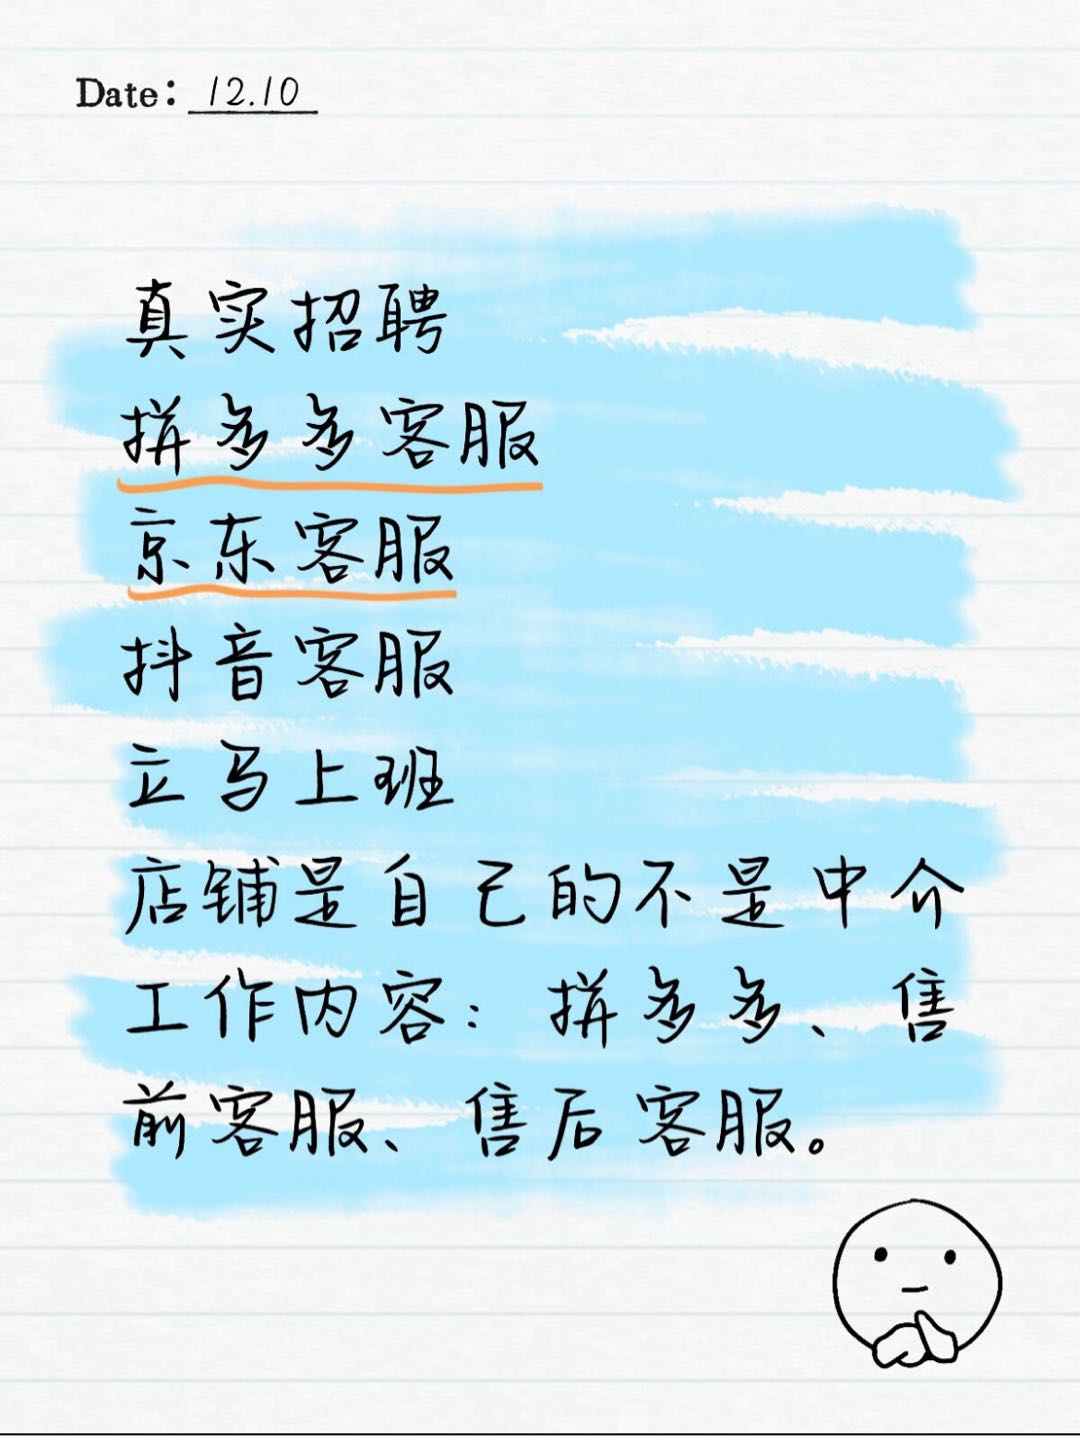 Date: 12.10
真实招聘
拼多多客服
京东客服
抖音客服
立马上班
店铺是自己的不是中介
工作内容：拼多多、售
前客服、售后客服。